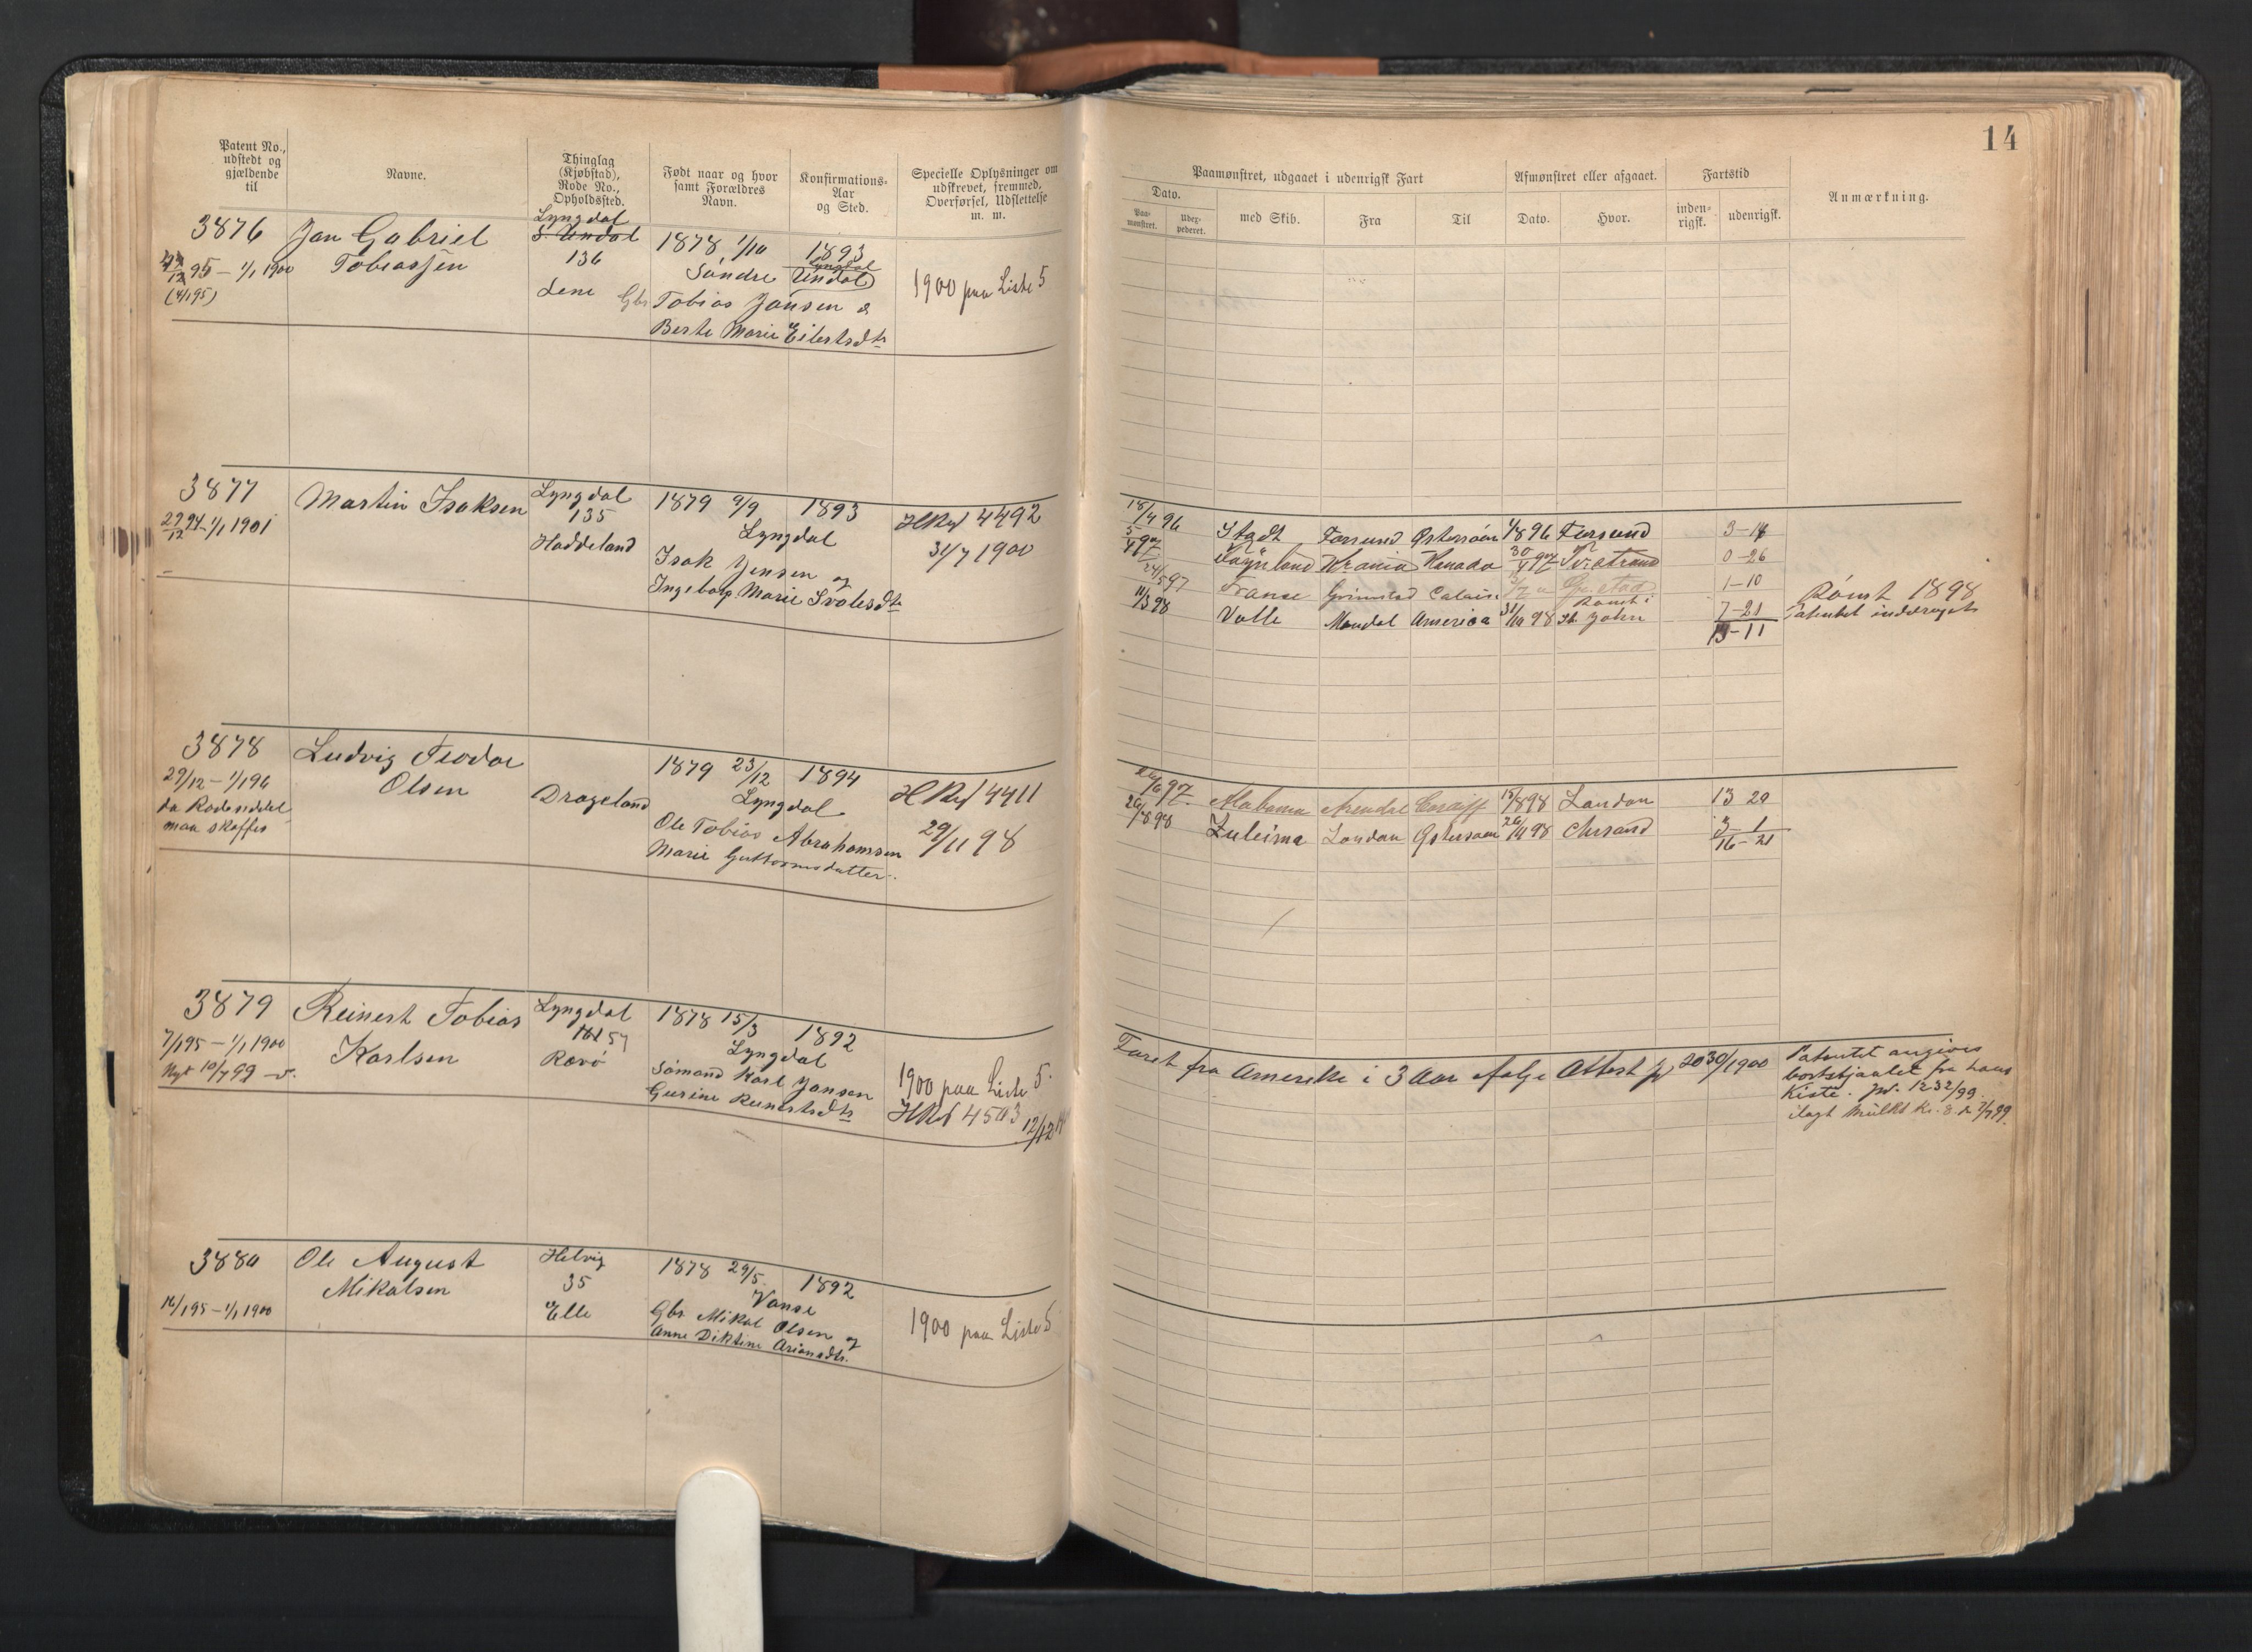 14
Patent No., udstedt og gjældende til
Navne.
Thinglag (Kjøbstad), Rode No., Opholdssted.
Født naar og hvor samt Forældres Navn.
Konfirmations-Aar og Sted.
Specielle Oplysninger om udskrevet, fremmed, Overførsel, Udslettelse m. m.
Paamønstret, udgaaet i udenrigsk Fart
Afmønstret eller afgaaet.
Fartstid
Anmærkning.
Dato.
Paa-mønstret.
Udex-pederet.
med Skib.
Fra
Til
Dato.
Hvor.
inden-rigsk.
udenrigsk.
3876
95 – 1/1 1900
(4/1 95)
Jan Gabriel
Tobiassen
Lyngdal
S. Undal
136
Lene
1878 1/10
Søndre Undal
Gbr Tobias Jansen &
Berte Marie Eilertsdtr
1893
Lyngdal
1900 paa Liste 5
3877
27/12 94 – 1/1 1901
Martin Isaksen
Lyngdal
135
Haddeland
1879 9/9
Lyngdal
Isak Jensen og
Ingeborg Marie
1893
4492
31/7 1900
18/4 96 Stadt Farsund Østersøen 1/8 96 Farsund 3–14
0–26
24/5 97 Franse Grimstad Calais 1–10
11/3 98 Valle Mandal America 31/10 98 St. John 7–21
Rømt i
13–11
Rømt 1898
Patentet inddraget
3878
29/12 – 1/1 96
da Rodeseddel
maa skaffes
Ludvig Teodor
Olsen
Drageland
1879 23/12
Lyngdal
Ole Tobias Abrahamsen
Marie Guttormsdatter
1894
4411
29/11 98
97 Alabama Arendal Cardiff 15/8 98 London 13 20
26/8 98 Zuleima London Østersøen 26/11 98 Chrsand 3–1
16–21
3879
7/1 95 – 1/1 1900
Nyt 10/7 99
Reinert Tobias
Karlsen
Lyngdal
157
Rovø
1878 15/3
Lyngdal
Sømand Karl Jansen
Gurine Reinertsdtr
1892
1900 paa Liste 5
4503
Faret fra Amerika i 3 Aar ifølge Attest
Patentet angives
bortstjaalet fra hans
Kiste. 1232/99
ilagt Mulkt Kr. 8
3880
16/1 95 – 1/1 1900
Ole August
Mikalsen
Helvig
35
Elle
1878 29/5
Vanse
Gbr Mikal Olsen og
Anne Diktine Ariansdtr.
1892
1900 paa Liste 5